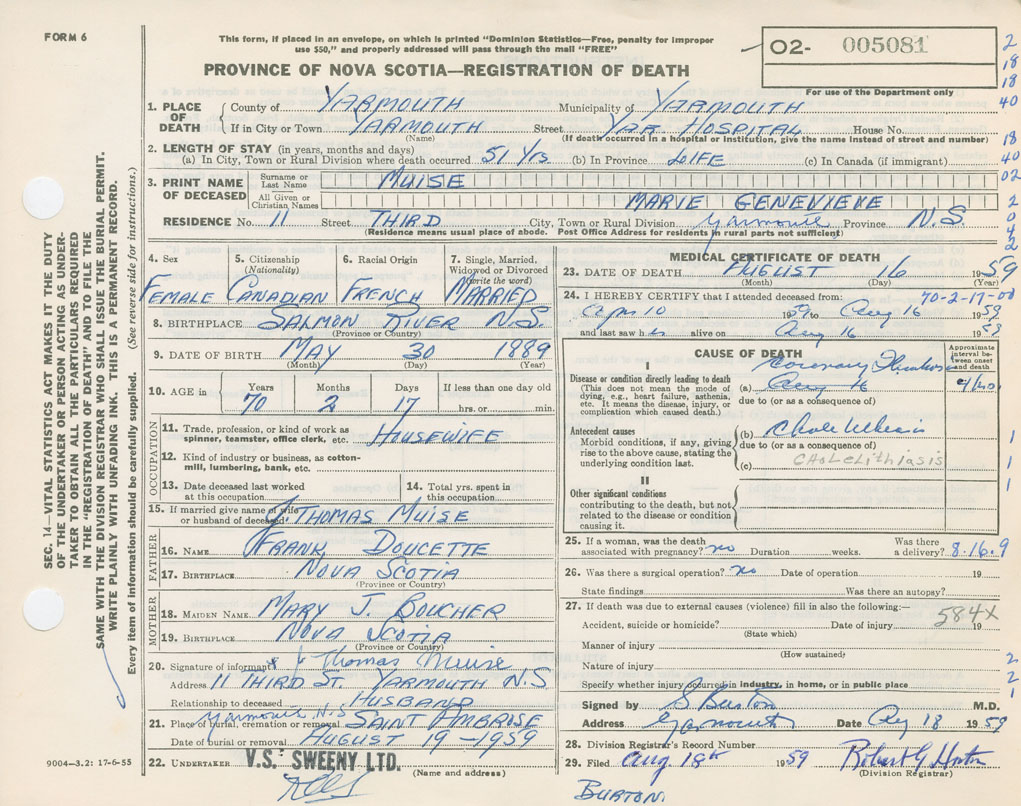 FORM 6
This form, if placed in an envelope, on which is printed "Dominion Statistics—Free, penalty for improper
use $50," and properly addressed will pass through the mail "FREE"
O2- 005081
For use of the Department only
PROVINCE OF NOVA SCOTIA—REGISTRATION OF DEATH
1. PLACE OF DEATH
County of YARMOUTH Municipality of YARMOUTH
If in City or Town YARMOUTH Street YAR HOSPITAL House No.
(Name) (If death occurred in a hospital or institution, give the name instead of street and number)
2. LENGTH OF STAY (in years, months and days)
(a) In City, Town or Rural Division where death occurred 51 Yrs (b) In Province LIFE (c) In Canada (if immigrant)
3. PRINT NAME OF DECEASED
Surname or Last Name MUISE
All Given or Christian Names MARIE GENEVIEVE
RESIDENCE No. 11 Street THIRD City, Town or Rural Division Yarmouth Province N.S.
(Residence means usual place of abode. Post Office Address for residents in rural parts not sufficient)
4. Sex 5. Citizenship (Nationality) 6. Racial Origin 7. Single, Married, Widowed or Divorced (write the word)
FEMALE CANADIAN FRENCH MARRIED
8. BIRTHPLACE SALMON RIVER N.S.
(Province or Country)
9. DATE OF BIRTH MAY 30 1889
(Month) (Day) (Year)
10. AGE in Years Months Days If less than one day old
70 2 17 hrs. or min.
OCCUPATION
11. Trade, profession, or kind of work as spinner, teamster, office clerk, etc. HOUSEWIFE
12. Kind of industry or business, as cotton-mill, lumbering, bank, etc.
13. Date deceased last worked at this occupation
14. Total yrs. spent in this occupation
15. If married give name of wife or husband of deceased J THOMAS MUISE
FATHER
16. NAME FRANK DOUCETTE
17. BIRTHPLACE NOVA SCOTIA
(Province or Country)
MOTHER
18. MAIDEN NAME MARY J. BOUCHER
19. BIRTHPLACE NOVA SCOTIA
(Province or Country)
20. Signature of informant J Thomas Muise
Address 11 THIRD ST. YARMOUTH N.S
Relationship to deceased HUSBAND
21. Place of burial, cremation or removal Yarmouth N.S SAINT AMBROSE
Date of burial or removal AUGUST 19-1959
22. UNDERTAKER V.S. SWEENY LTD.
(Name and address)
9004—3.2: 17-6-55
MEDICAL CERTIFICATE OF DEATH
23. DATE OF DEATH AUGUST 16 1959
(Month) (Day) (Year)
70-2-17-00
24. I HEREBY CERTIFY that I attended deceased from:
Apr 10 1959 to Aug 16 1959
and last saw her alive on Aug 16 1959
CAUSE OF DEATH
Approximate interval between onset and death
I
Disease or condition directly leading to death
(This does not mean the mode of dying, e.g., heart failure, asthenia, etc. It means the disease, injury, or complication which caused death.)
Coronary
(a) Aug 16
due to (or as a consequence of)
Antecedent causes
Morbid conditions, if any, giving rise to the above cause, stating the underlying condition last.
(b)
due to (or as a consequence of)
(c) CHOLELITHIASIS
II
Other significant conditions
contributing to the death, but not related to the disease or condition causing it.
25. If a woman, was the death associated with pregnancy? no Duration weeks. Was there a delivery? 8.16.9
26. Was there a surgical operation? no Date of operation 19
State findings Was there an autopsy?
27. If death was due to external causes (violence) fill in also the following:—
584X
Accident, suicide or homicide? Date of injury 19
(State which)
Manner of injury
(How sustained)
Nature of injury
Specify whether injury occurred in industry, in home, or in public place
Signed by S Burton M.D.
Address Yarmouth Date Aug 18 1959
28. Division Registrar's Record Number
29. Filed Aug 18th 1959 Robert G
(Division Registrar)
BURTON.
SEC. 14—VITAL STATISTICS ACT MAKES IT THE DUTY
OF THE UNDERTAKER OR PERSON ACTING AS UNDER-
TAKER TO OBTAIN ALL THE PARTICULARS REQUIRED
IN THE "REGISTRATION OF DEATH" AND TO FILE THE
SAME WITH THE DIVISION REGISTRAR WHO SHALL ISSUE THE BURIAL PERMIT.
WRITE PLAINLY WITH UNFADING INK. THIS IS A PERMANENT RECORD.
Every item of information should be carefully supplied. (See reverse side for instructions.)
2
18
18
40
18
40
02
2
0
4
2
1
1
1
2
2
1